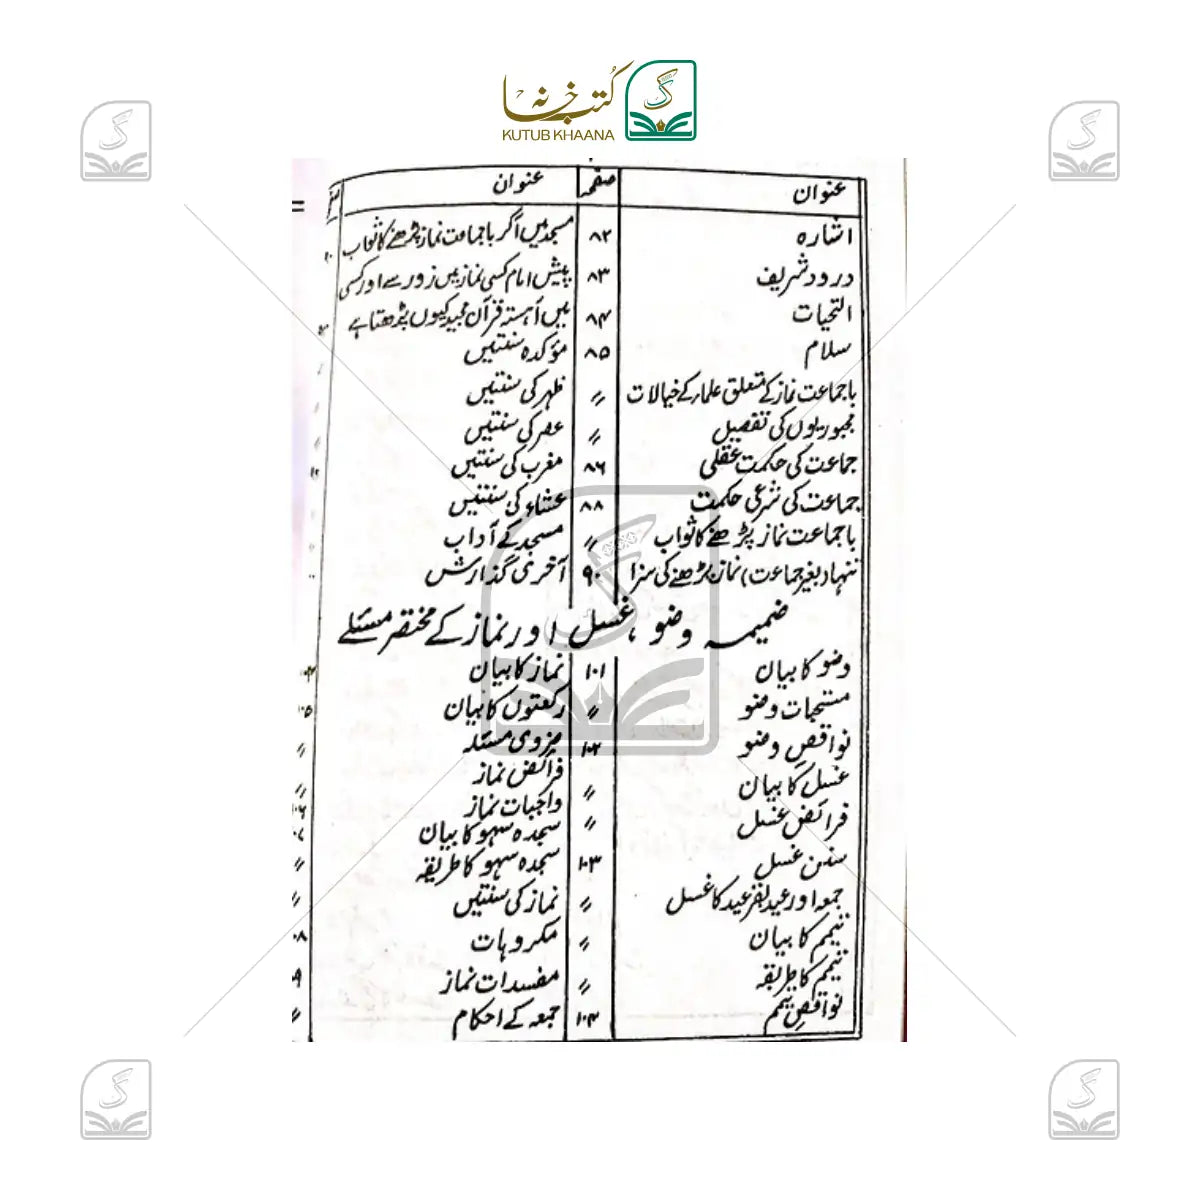 کتب خانہ
KUTUB KHAANA
عنوان صفحہ
اشارہ ۸۲
درود شریف ۸۳
التحیات ۸۴
سلام ۸۵
باجماعت نماز کے متعلق علماء کے خیالات 〃
مجبوریوں کی تفصیل 〃
جماعت کی حکمت عقلی ۸۶
جماعت کی شرعی حکمت ۸۸
باجماعت نماز پڑھنے کا ثواب 〃
تنہا (بغیر جماعت) نماز پڑھنے کی سزا ۹۰
عنوان
مسجد میں اگر باجماعت نماز پڑھنے کا ثواب
پیش امام کسی نماز میں زور سے اور کسی
میں آہستہ قرآن مجید کیوں پڑھتا ہے
مؤکدہ سنتیں
ظہر کی سنتیں
عصر کی سنتیں
مغرب کی سنتیں
عشاء کی سنتیں
مسجد کے آداب
آخری گذارش
ضمیمہ وضو، غسل اور نماز کے مختصر مسئلے
وضو کا بیان ۱۰۱
مستحبات وضو 〃
نواقصِ وضو ۱۰۲
غسل کا بیان 〃
فرائض غسل 〃
سنن غسل ۱۰۳
جمعہ اور عید بقر عید کا غسل 〃
تیمم کا بیان 〃
تیمم کا طریقہ 〃
نواقصِ تیمم ۱۰۴
نماز کا بیان
رکعتوں کا بیان ۱۰۵
ضروی مسئلہ 〃
فرائض نماز 〃
واجبات نماز ۱۰۶
سجدہ سہو کا بیان
سجدہ سہو کا طریقہ 〃
نماز کی سنتیں 〃
مکروہات
مفسدات نماز
جمعہ کے احکام 〃